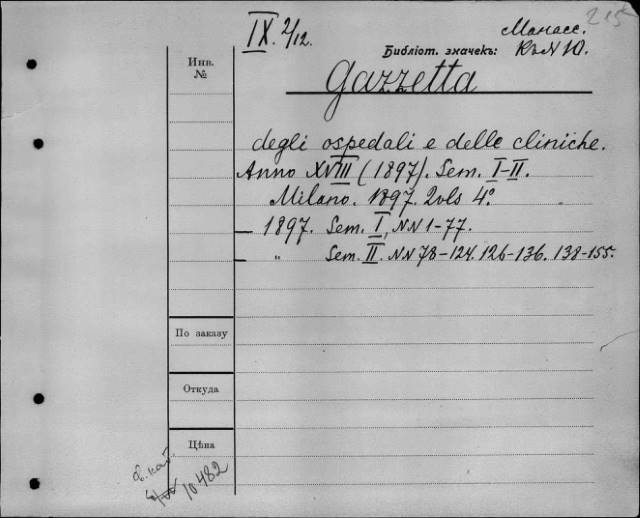 215
IX. 2/12.
Манасс.
Библіот. значекъ: КъN Ю.
Инв. №
Gazzetta
degli ospedali e delle cliniche.
Anno XVIII (1897). Sem. I-II.
Milano. 1897. 2 vls 4º.
— 1897. Sem. I, NN 1-77.
— " Sem. II. NN 78-124. 126-136. 138-155.
По заказу
Откуда
Цѣна
10482